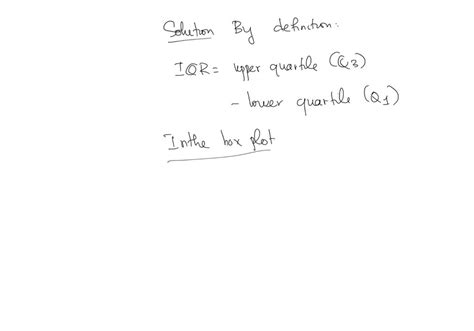 Solution By definition:
IQR = upper quartile (Q3)
- lower quartile (Q1)
In the box plot